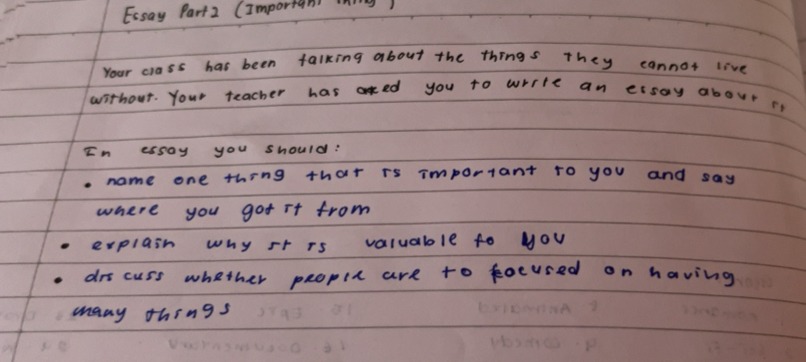 Essay Part 2 (Important thing)
Your class has been talking about the things they cannot live
without. Your teacher has asked you to write an essay about it
In essay you should:
• name one thing that is important to you and say
where you got it from
• explain why it is valuable to you
• discuss whether people are to focused on having
many things